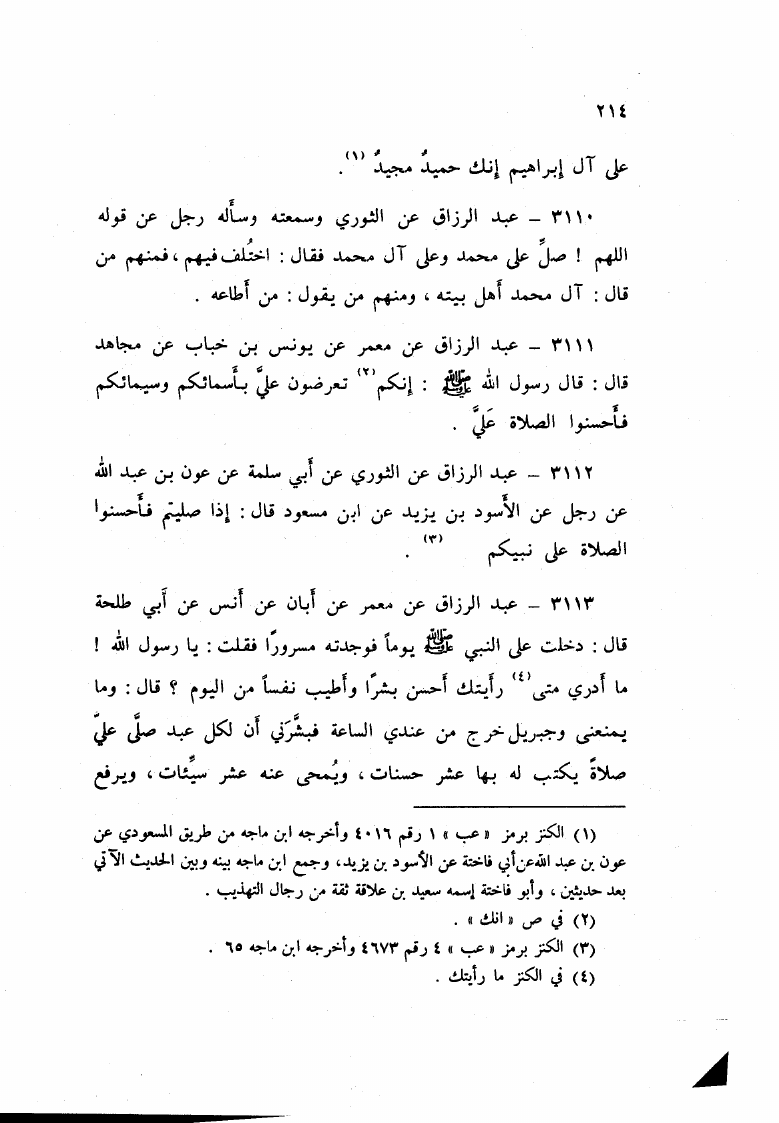 ٢١٤
على آل إبراهيم إنك حميدٌ مجيدٌ (١) .
٣١١٠ – عبد الرزاق عن الثوري وسمعته وسأَله رجل عن قوله
اللهم ! صلِّ على محمد وعلى آل محمد فقال : اختُلف فيهم ، فمنهم من
قال : آل محمد أَهل بيته ، ومنهم من يقول : من أَطاعه .
٣١١١ – عبد الرزاق عن معمر عن يونس بن خباب عن مجاهد
قال : قال رسول الله ﷺ : إنكم (٢) تعرضون عليَّ بأَسمائكم وسيمائكم
فأَحسنوا الصلاة عَليَّ .
٣١١٢ – عبد الرزاق عن الثوري عن أَبي سلمة عن عون بن عبد الله
عن رجل عن الأَسود بن يزيد عن ابن مسعود قال : إذا صليتم فأَحسنوا
الصلاة على نبيكم (٣) .
٣١١٣ – عبد الرزاق عن معمر عن أَبان عن أَنس عن أَبي طلحة
قال : دخلت على النبي ﷺ يوماً فوجدته مسرورًا فقلت : يا رسول الله !
ما أَدري متى (٤) رأَيتك أَحسن بشرًا وأَطيب نفساً من اليوم ؟ قال : وما
يمنعنى وجبريل خرج من عندي الساعة فبشَّرَني أَن لكل عبد صلَّى عليَّ
صلاةً يكتب له بها عشر حسنات ، ويُمحى عنه عشر سيِّئات ، ويرفع
(١) الكنز برمز « عب » ١ رقم ٤٠١٦ وأخرجه ابن ماجه من طريق المسعودي عن
عون بن عبد الله عن أبي فاختة عن الأسود بن يزيد، وجمع ابن ماجه بينه وبين الحديث الآتي
بعد حديثين ، وأبو فاختة إسمه سعيد بن علاقة ثقة من رجال التهذيب .
(٢) في ص « انك » .
(٣) الكنز برمز « عب » ٤ رقم ٤٦٧٣ وأخرجه ابن ماجه ٦٥ .
(٤) في الكنز ما رأيتك .